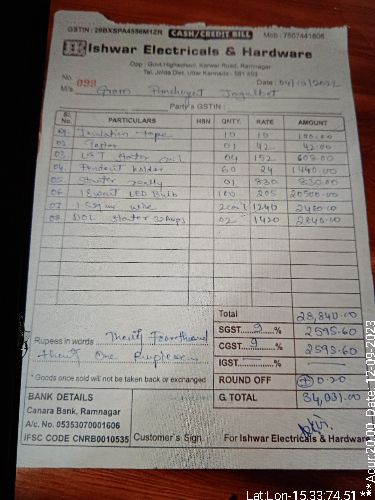 GSTIN : 29BXSPA4556M1ZR CASH/CREDIT BILL Mob : 7507441606
Ishwar Electricals & Hardware
Opp : Govt.Highschool, Karwar Road, Ramnagar
Tal. Joida Dist. Uttar Kannada - 581 453
No. 093 Date : 04/10/2022
M/s Gram Panchayet Jagalbet
Party's GSTIN :
Sl. No. PARTICULARS HSN QNTY. RATE AMOUNT
01 Insulation tape 10 10 100.00
02 Tester 01 42 42.00
03 Starter coil 04 152 608.00
04 Pendent holder 60 24 1440.00
05 Starter relly 01 830 830.00
06 LED Bulb 100 205 20500.00
07 1.5 sqmm wire 2 coil 1240 2480.00
08 DOL Starter 02 1420 2840.00
Total 28,840.00
SGST 9 % 2595.60
CGST 9 % 2595.60
IGST %
Rupees in words Thirty Four thousand
thirty One Rupees
* Goods once sold will not be taken back or exchanged
ROUND OFF (+) 0.20
G. TOTAL 34,031.00
BANK DETAILS
Canara Bank, Ramnagar
A/c. No. 05353070001606
IFSC CODE CNRB0010535
Customer's Sign. For Ishwar Electricals & Hardware
Lat:Lon-15.33:74.51 **Acur 20.00 Date: 12-09-2023